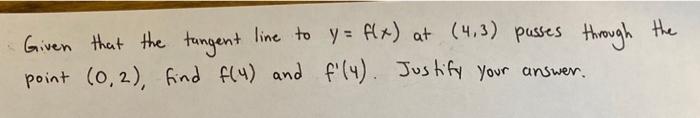 Given that the tangent line to y = f(x) at (4,3) passes through the
point (0,2), find f(4) and f'(4). Justify your answer.